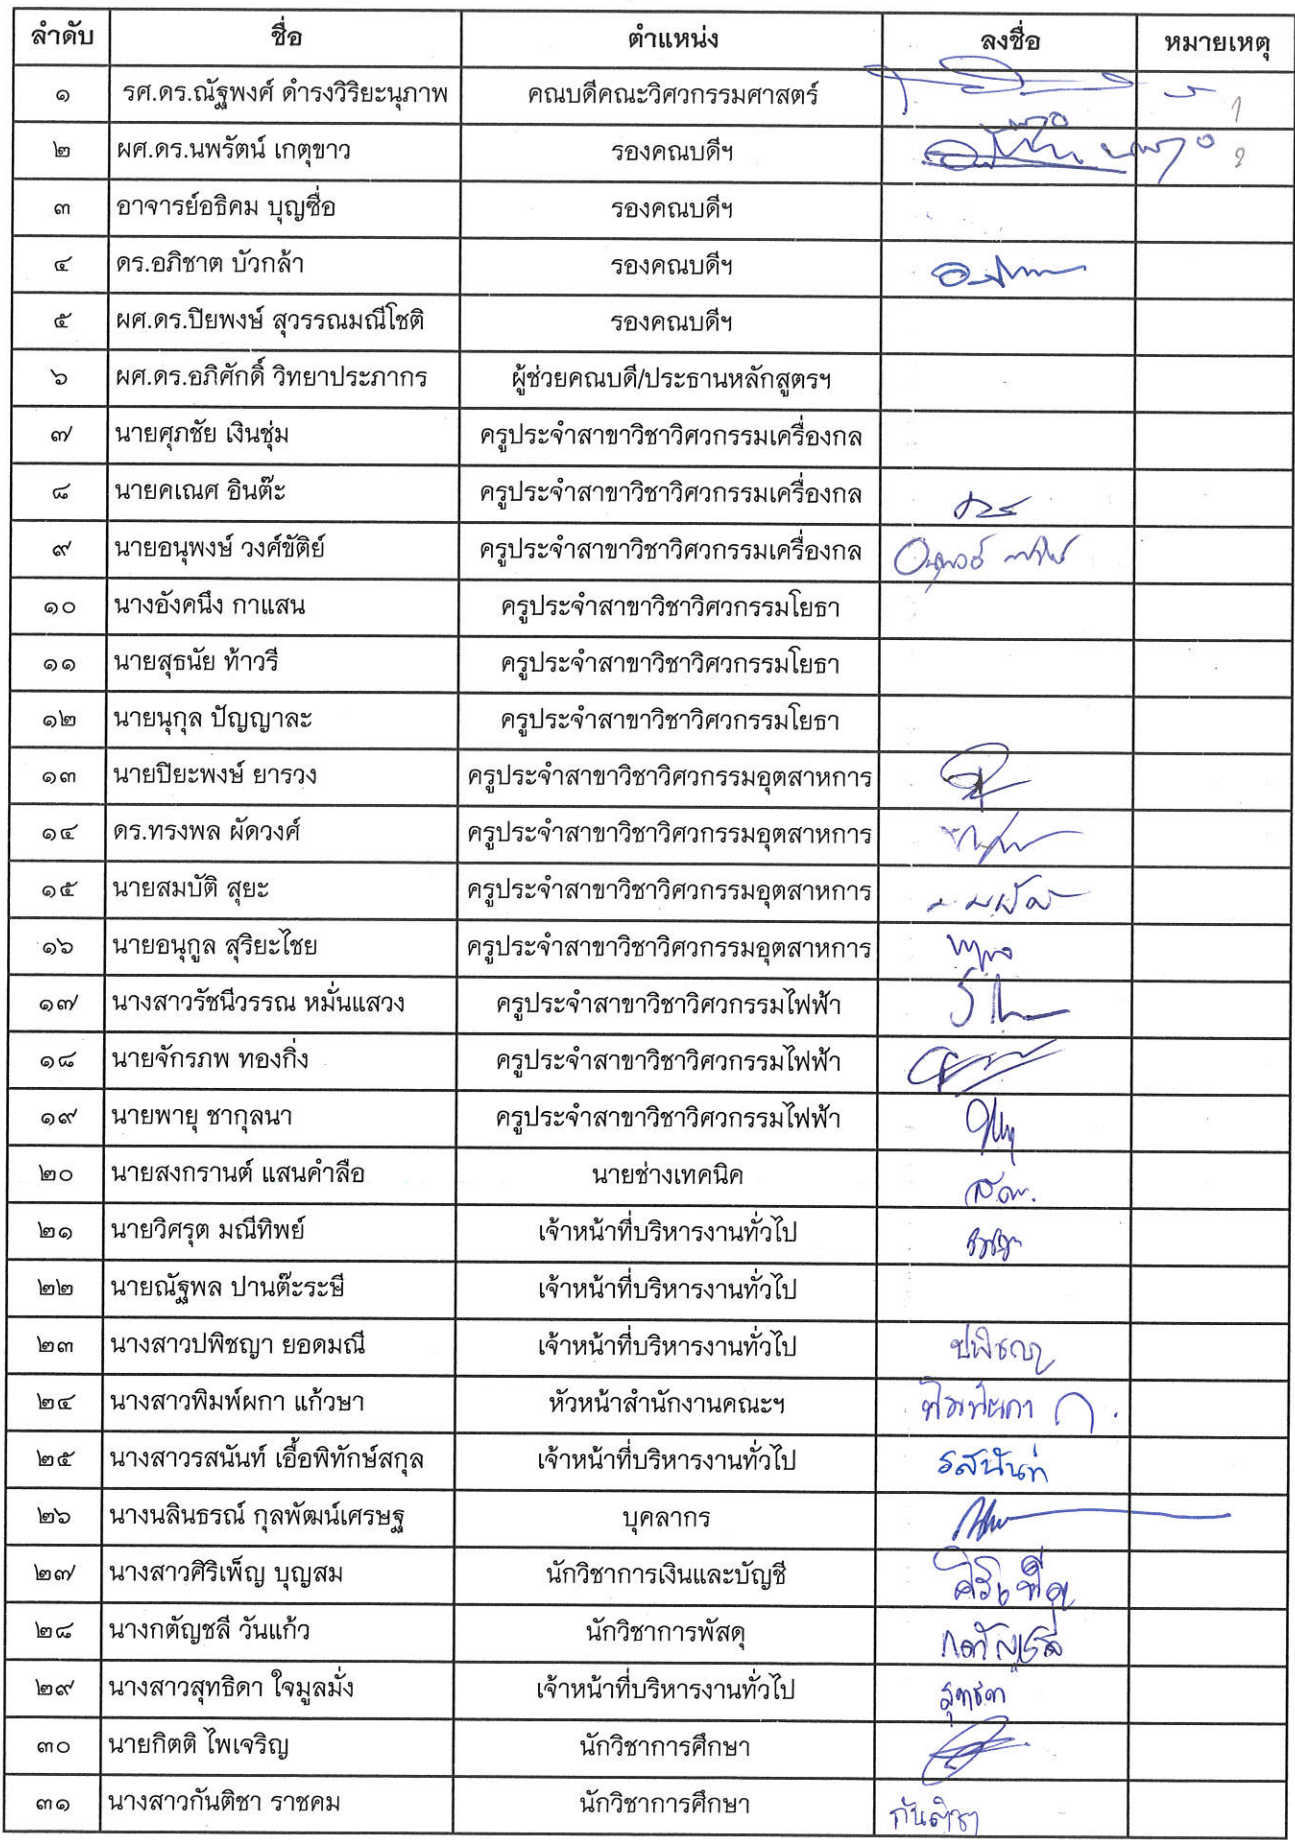 ลำดับ ชื่อ ตำแหน่ง ลงชื่อ หมายเหตุ
๑ รศ.ดร.ณัฐพงศ์ ดำรงวิริยะนุภาพ คณบดีคณะวิศวกรรมศาสตร์ 1
๒ ผศ.ดร.นพรัตน์ เกตุขาว รองคณบดีฯ 2
๓ อาจารย์อธิคม บุญซื่อ รองคณบดีฯ
๔ ดร.อภิชาต บัวกล้า รองคณบดีฯ
๕ ผศ.ดร.ปิยพงษ์ สุวรรณมณีโชติ รองคณบดีฯ
๖ ผศ.ดร.อภิศักดิ์ วิทยาประภากร ผู้ช่วยคณบดี/ประธานหลักสูตรฯ
๗ นายศุภชัย เงินชุ่ม ครูประจำสาขาวิชาวิศวกรรมเครื่องกล
๘ นายคเณศ อินต๊ะ ครูประจำสาขาวิชาวิศวกรรมเครื่องกล
๙ นายอนุพงษ์ วงศ์ขัติย์ ครูประจำสาขาวิชาวิศวกรรมเครื่องกล
๑๐ นางอังคนึง กาแสน ครูประจำสาขาวิชาวิศวกรรมโยธา
๑๑ นายสุธนัย ท้าวรี ครูประจำสาขาวิชาวิศวกรรมโยธา
๑๒ นายนุกุล ปัญญาละ ครูประจำสาขาวิชาวิศวกรรมโยธา
๑๓ นายปิยะพงษ์ ยารวง ครูประจำสาขาวิชาวิศวกรรมอุตสาหการ
๑๔ ดร.ทรงพล ผัดวงศ์ ครูประจำสาขาวิชาวิศวกรรมอุตสาหการ
๑๕ นายสมบัติ สุยะ ครูประจำสาขาวิชาวิศวกรรมอุตสาหการ
๑๖ นายอนุกูล สุริยะไชย ครูประจำสาขาวิชาวิศวกรรมอุตสาหการ
๑๗ นางสาวรัชนีวรรณ หมั่นแสวง ครูประจำสาขาวิชาวิศวกรรมไฟฟ้า
๑๘ นายจักรภพ ทองกิ่ง ครูประจำสาขาวิชาวิศวกรรมไฟฟ้า
๑๙ นายพายุ ชากุลนา ครูประจำสาขาวิชาวิศวกรรมไฟฟ้า
๒๐ นายสงกรานต์ แสนคำลือ นายช่างเทคนิค
๒๑ นายวิศรุต มณีทิพย์ เจ้าหน้าที่บริหารงานทั่วไป
๒๒ นายณัฐพล ปานต๊ะระษี เจ้าหน้าที่บริหารงานทั่วไป
๒๓ นางสาวปพิชญา ยอดมณี เจ้าหน้าที่บริหารงานทั่วไป ปพิชญา
๒๔ นางสาวพิมพ์ผกา แก้วษา หัวหน้าสำนักงานคณะฯ พิมพ์ผกา ก.
๒๕ นางสาวรสนันท์ เอื้อพิทักษ์สกุล เจ้าหน้าที่บริหารงานทั่วไป รสนันท์
๒๖ นางนลินธรณ์ กุลพัฒน์เศรษฐ บุคลากร
๒๗ นางสาวศิริเพ็ญ บุญสม นักวิชาการเงินและบัญชี ศิริเพ็ญ
๒๘ นางกตัญชลี วันแก้ว นักวิชาการพัสดุ กตัญชลี
๒๙ นางสาวสุทธิดา ใจมูลมั่ง เจ้าหน้าที่บริหารงานทั่วไป
๓๐ นายกิตติ ไพเจริญ นักวิชาการศึกษา
๓๑ นางสาวกันติชา ราชคม นักวิชาการศึกษา กันติชา